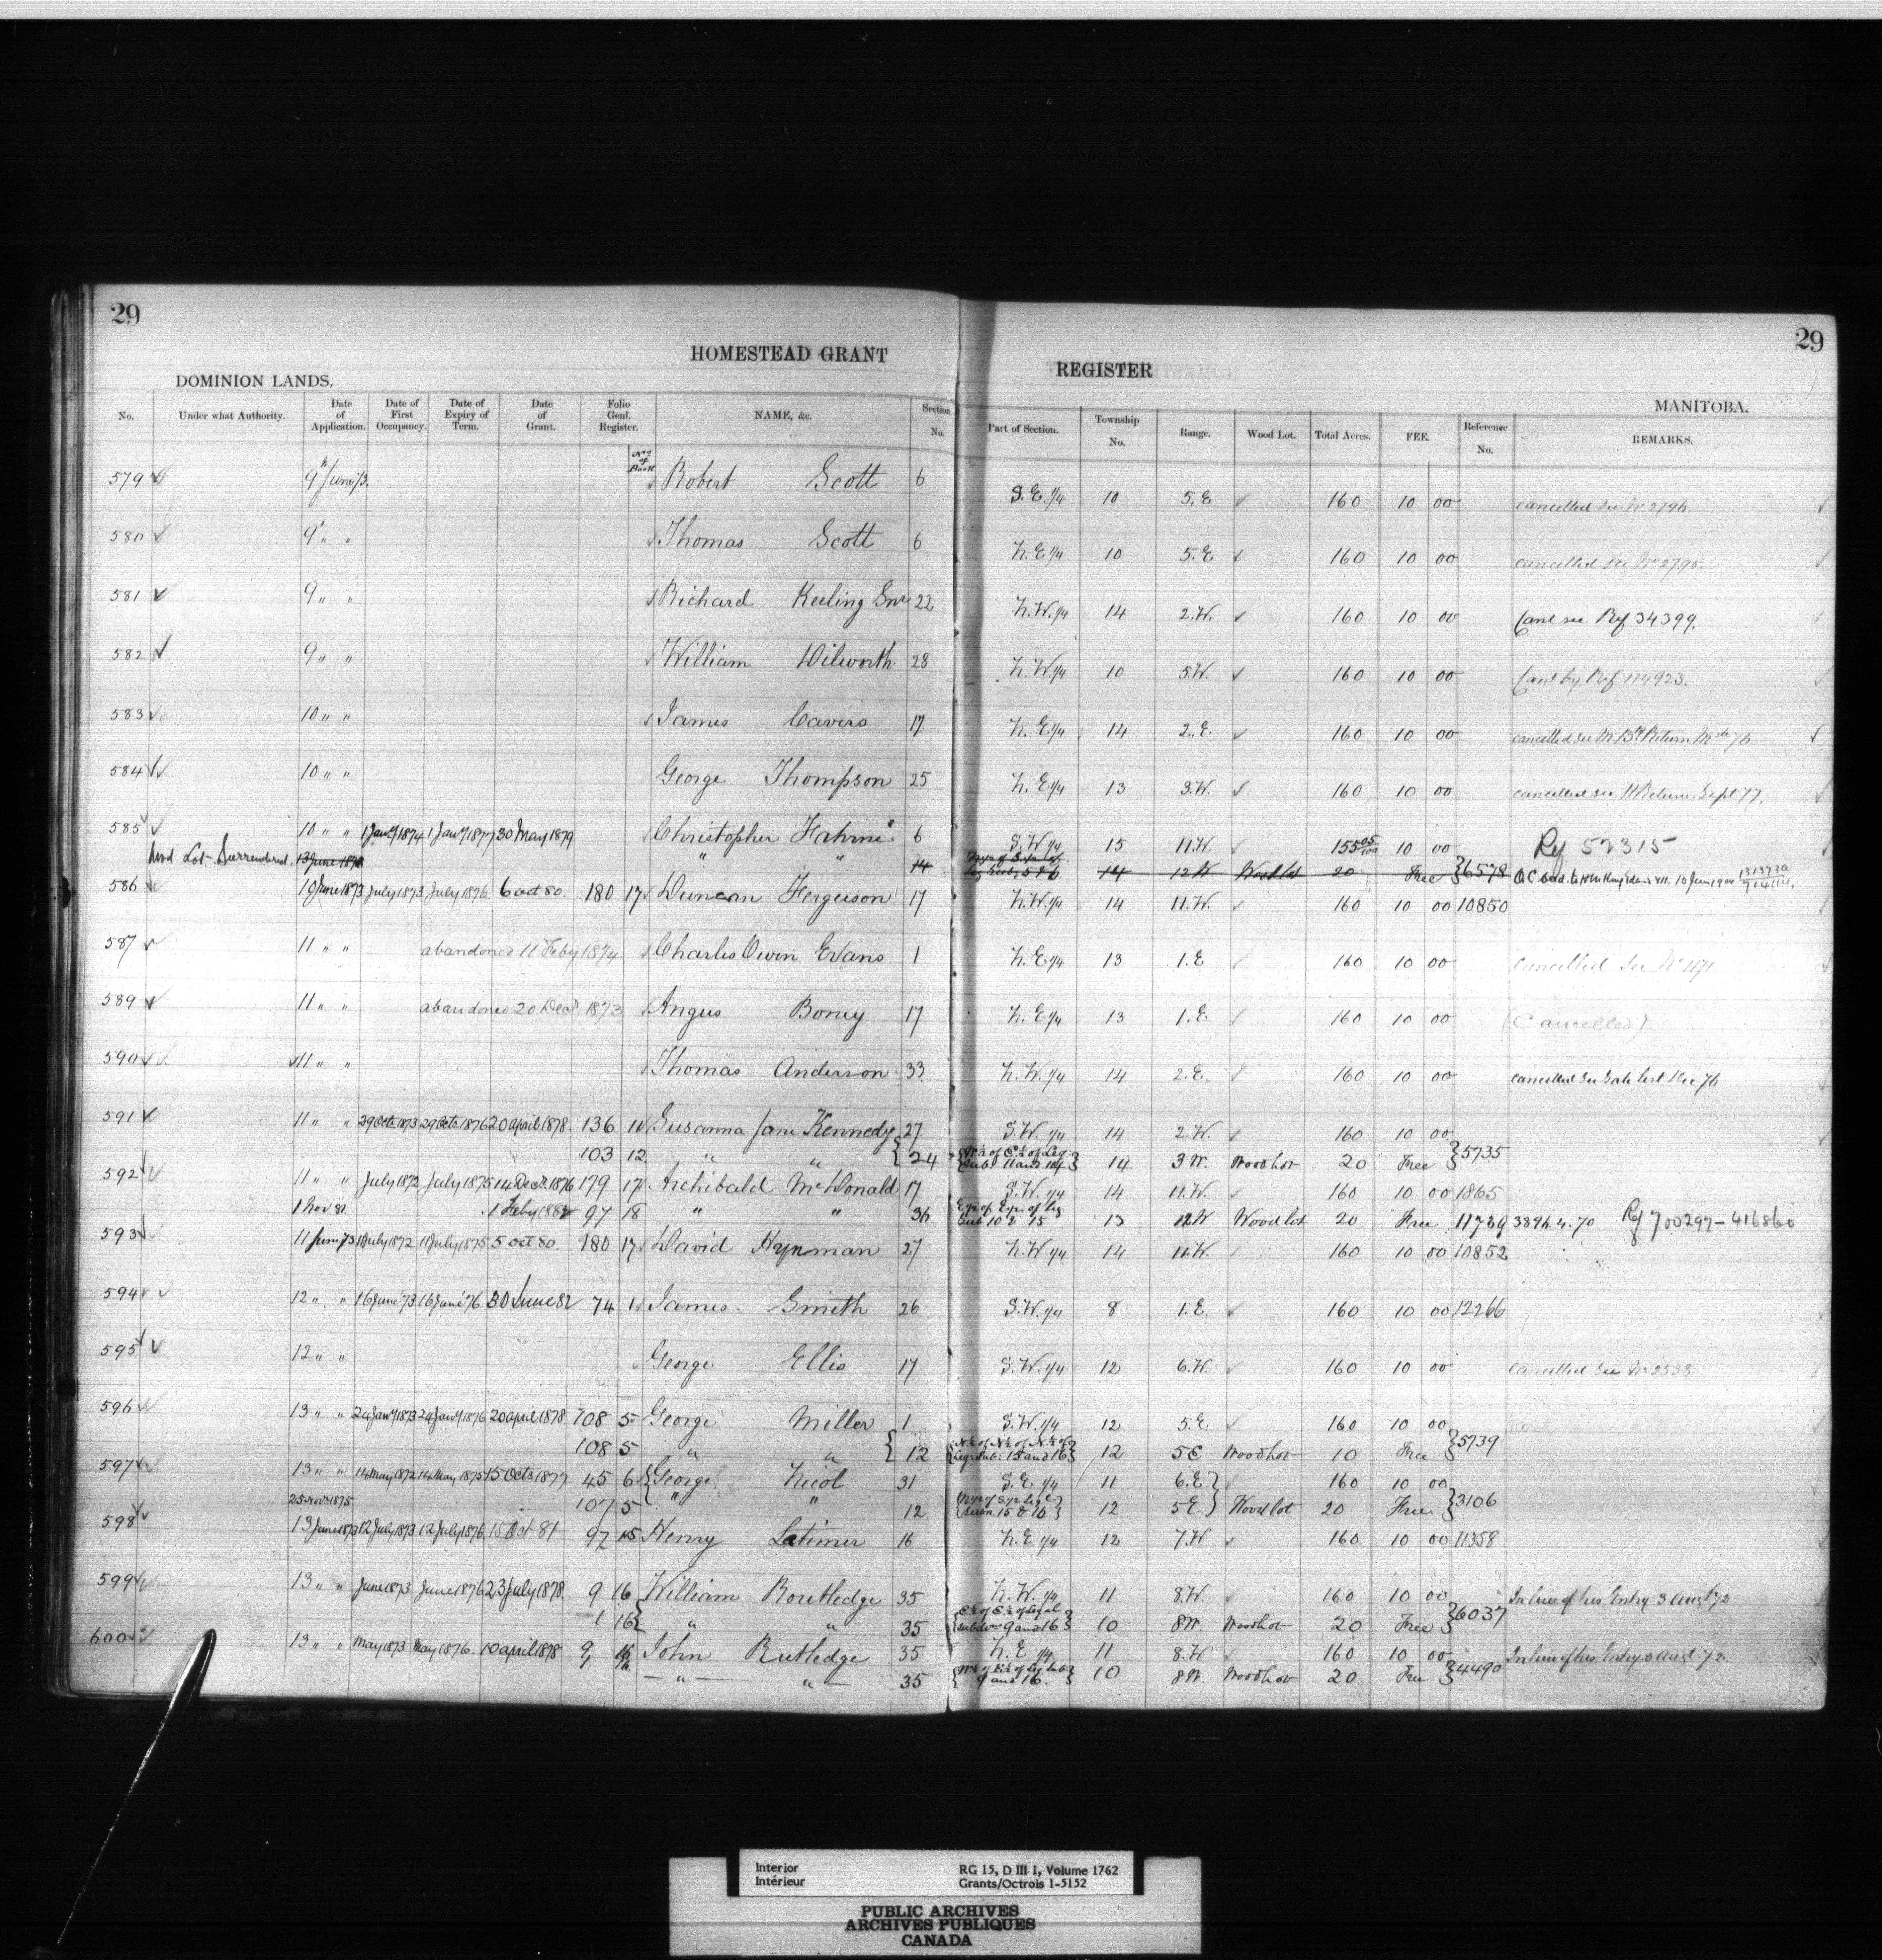 29
29
HOMESTEAD GRANT
REGISTER
DOMINION LANDS,
MANITOBA.
No. Under what Authority. Date of Application. Date of First Occupancy. Date of Expiry of Term. Date of Grant. Folio Genl. Register. NAME, &c. Section No. Part of Section. Township No. Range. Wood Lot. Total Acres. FEE. Reference No. REMARKS.
No of Book
579 9th June 73 Robert Scott 6 S.E. 1/4 10 5.E 160 10 00 cancelled see No 2796
580 9 " " Thomas Scott 6 N.E 1/4 10 5.E 160 10 00 cancelled see No 2795
581 9 " " Richard Keeling Snr 22 N.W. 1/4 14 2.W. 160 10 00 Canl see Ref 34399.
582 9 " " William Dilworth 28 N.W. 1/4 10 5.W. 160 10 00 Canl by. Ref 114923.
583 10 " " James Cavers 17 N. E 1/4 14 2.E. 160 10 00 cancelled see Return 76
584 10 " " George Thompson 25 N. E 1/4 13 3.W. 160 10 00 cancelled see Return Sept 77.
585 10 " " 1 Jany 1874 1 Jany 1877 30 May 1879 Christopher Fahrni 6 S.W 1/4 15 11.W. 155 05/100 10 00 Ref 52315
Wood Lot Surrendered. 13 June " " 14 14 12 W Wood lot 20 Free 6578 10 Jany 1904
586 10 June 1873 July 1873 July 1876. 6 oct 80. 180 17 Duncan Ferguson 17 N.W. 1/4 14 11.W. 160 10 00 10850
587 11 " " abandoned 11 Feby 1874 Charles Owen Evans 1 N. E 1/4 13 1.E 160 10 00 cancelled See No 1171
589 11 " " abandoned 20 Decr. 1873 Angus Boney 17 N. E 1/4 13 1.E 160 10 00 (Cancelled)
590 11 " " Thomas Anderson 33 N.W. 1/4 14 2.E. 160 10 00 cancelled See Dec 76
591 11 " " 29 Octr 1873 29 Octr 1876 20 april 1878. 136 11 Susanna Jane Kennedy 27 S.W. 1/4 14 2.W. 160 10 00
103 12 " " 24 W½ of E½ of Leg: Sub: 11 and 14 14 3 W. Wood Lot 20 Free 5735
592 11 " " July 1872 July 1875 14 Decr. 1876 179 17 Archibald McDonald 17 S.W. 1/4 14 11.W. 160 10 00 1865
1 Nov 81 1 Feby 1882 97 18 " " 36 E½ of E½ of Leg Sub 10 & 15 13 12 W Wood lot 20 Free 11739 3896.4.70 Ref 700297-416860
593 11 June 73 1 July 1872 1 July 1875 5 oct 80. 180 17 David Hynman 27 N.W 1/4 14 11.W. 160 10 00 10852
594 12 " " 16 June '73 16 June '76 30 June 82 74 1 James Smith 26 S.W. 1/4 8 1.E. 160 10 00 12266
595 12 " " George Ellis 17 S.W. 1/4 12 6.W. 160 10 00 cancelled See No 2538.
596 13 " " 24 Jany 1873 24 Jany 1876 20 april 1878. 108 5 George Miller 1 S.W. 1/4 12 5.E 160 10 00
108 5 " " 12 N½ of N½ of N½ of Leg: Sub: 15 and 16 12 5 E Wood Lot 10 Free 5739
597 13 " " 14 May 1872 14 May 1875 15 Octr 1877 45 6 George Nicol 31 S.E 1/4 11 6.E 160 10 00
25 Novr 1875 107 5 " " 12 15 & 16 12 5 E Wood lot 20 Free 3106
598 13 June 1873 12 July 1873 12 July 1876. 15 Oct 81 97 15 Henry Latimer 16 N.E 1/4 12 7.W 160 10 00 11358
599 13 " " June 1873 June 1876 23 July 1878. 9 16 William Routledge 35 N.W. 1/4 11 8.W. 160 10 00 In lieu of his Entry 3 Augt 72
1 16 " " 35 E½ of E½ of Legal subdivn 9 and 16 10 8 W. Wood Lot 20 Free 6037
600 13 " " May 1873 May 1876. 10 april 1878 9, 16 John Rutledge 35 N. E 1/4 11 8.W. 160 10 00 In lieu of his Entry 3 Augt 72.
" " 35 W½ of E½ of Leg Sub: 9 and 16. 10 8 W. Wood Lot 20 Free 4490
Interior
Intérieur
RG 15, D III 1, Volume 1762
Grants/Octrois 1-5152
PUBLIC ARCHIVES
ARCHIVES PUBLIQUES
CANADA